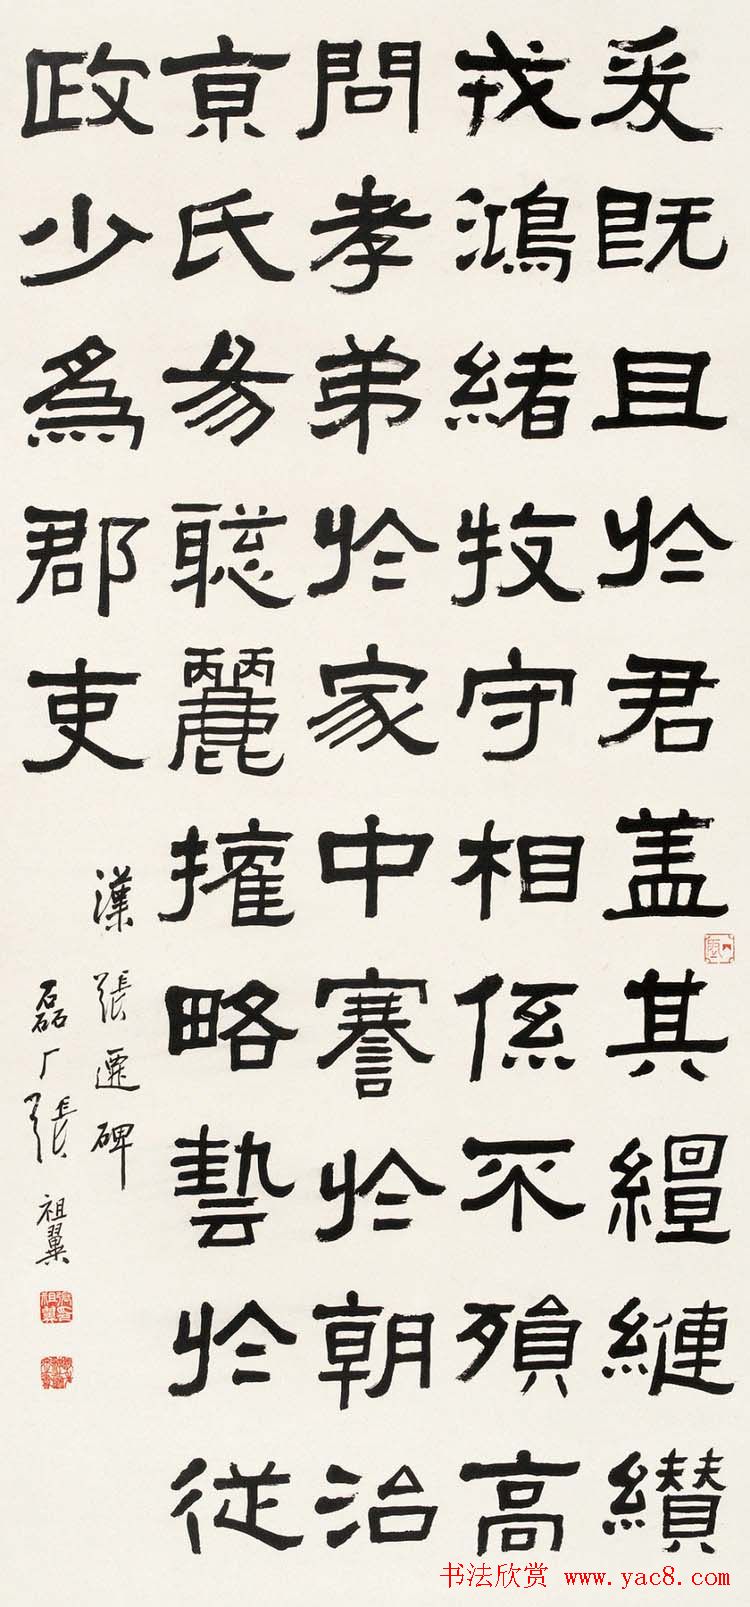 爰既且於君盖其繵縺纘
戎鴻緒牧守相係不殞高
問孝弟於家中謇於朝治
京氏易聰麗權略藝於從
政少爲郡吏
漢張遷碑
磊厂張祖翼
书法欣赏 www.yac8.com